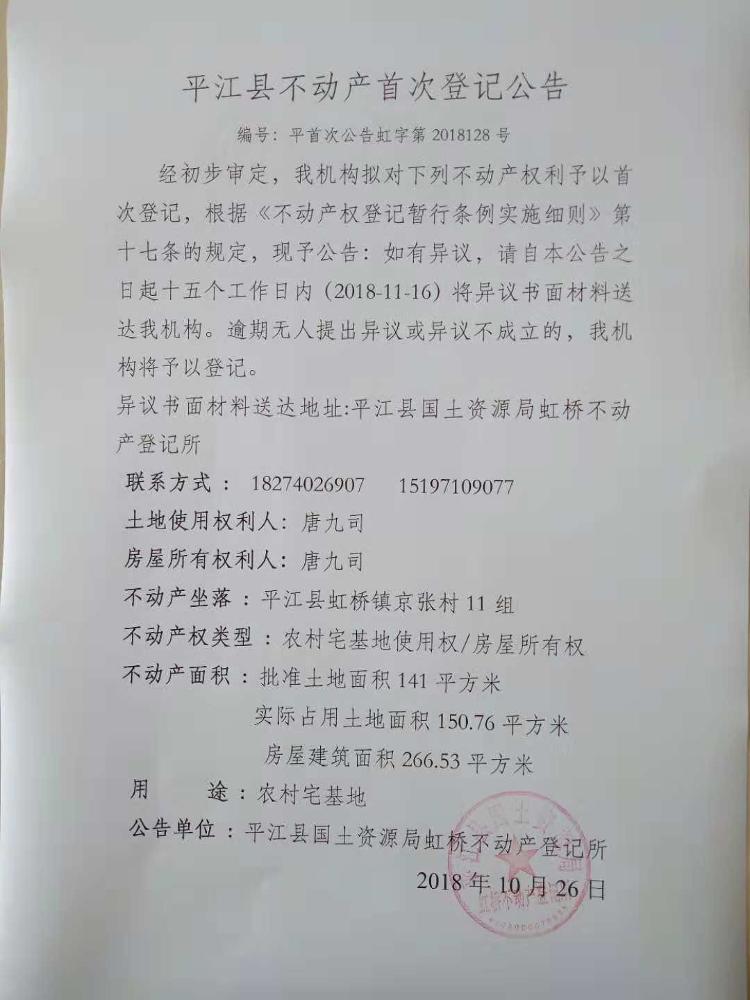 平江县不动产首次登记公告
编号：平首次公告虹字第 2018128 号
经初步审定，我机构拟对下列不动产权利予以首
次登记，根据《不动产权登记暂行条例实施细则》第
十七条的规定，现予公告：如有异议，请自本公告之
日起十五个工作日内（2018-11-16）将异议书面材料送
达我机构。逾期无人提出异议或异议不成立的，我机
构将予以登记。
异议书面材料送达地址:平江县国土资源局虹桥不动
产登记所
联系方式 ： 18274026907 15197109077
土地使用权利人：唐九司
房屋所有权利人：唐九司
不动产坐落 ：平江县虹桥镇京张村 11 组
不动产权类型 ：农村宅基地使用权/房屋所有权
不动产面积 ：批准土地面积 141 平方米
实际占用土地面积 150.76 平方米
房屋建筑面积 266.53 平方米
用 途 ：农村宅基地
公告单位 ：平江县国土资源局虹桥不动产登记所
2018 年 10 月 26 日
虹桥不动产登记所